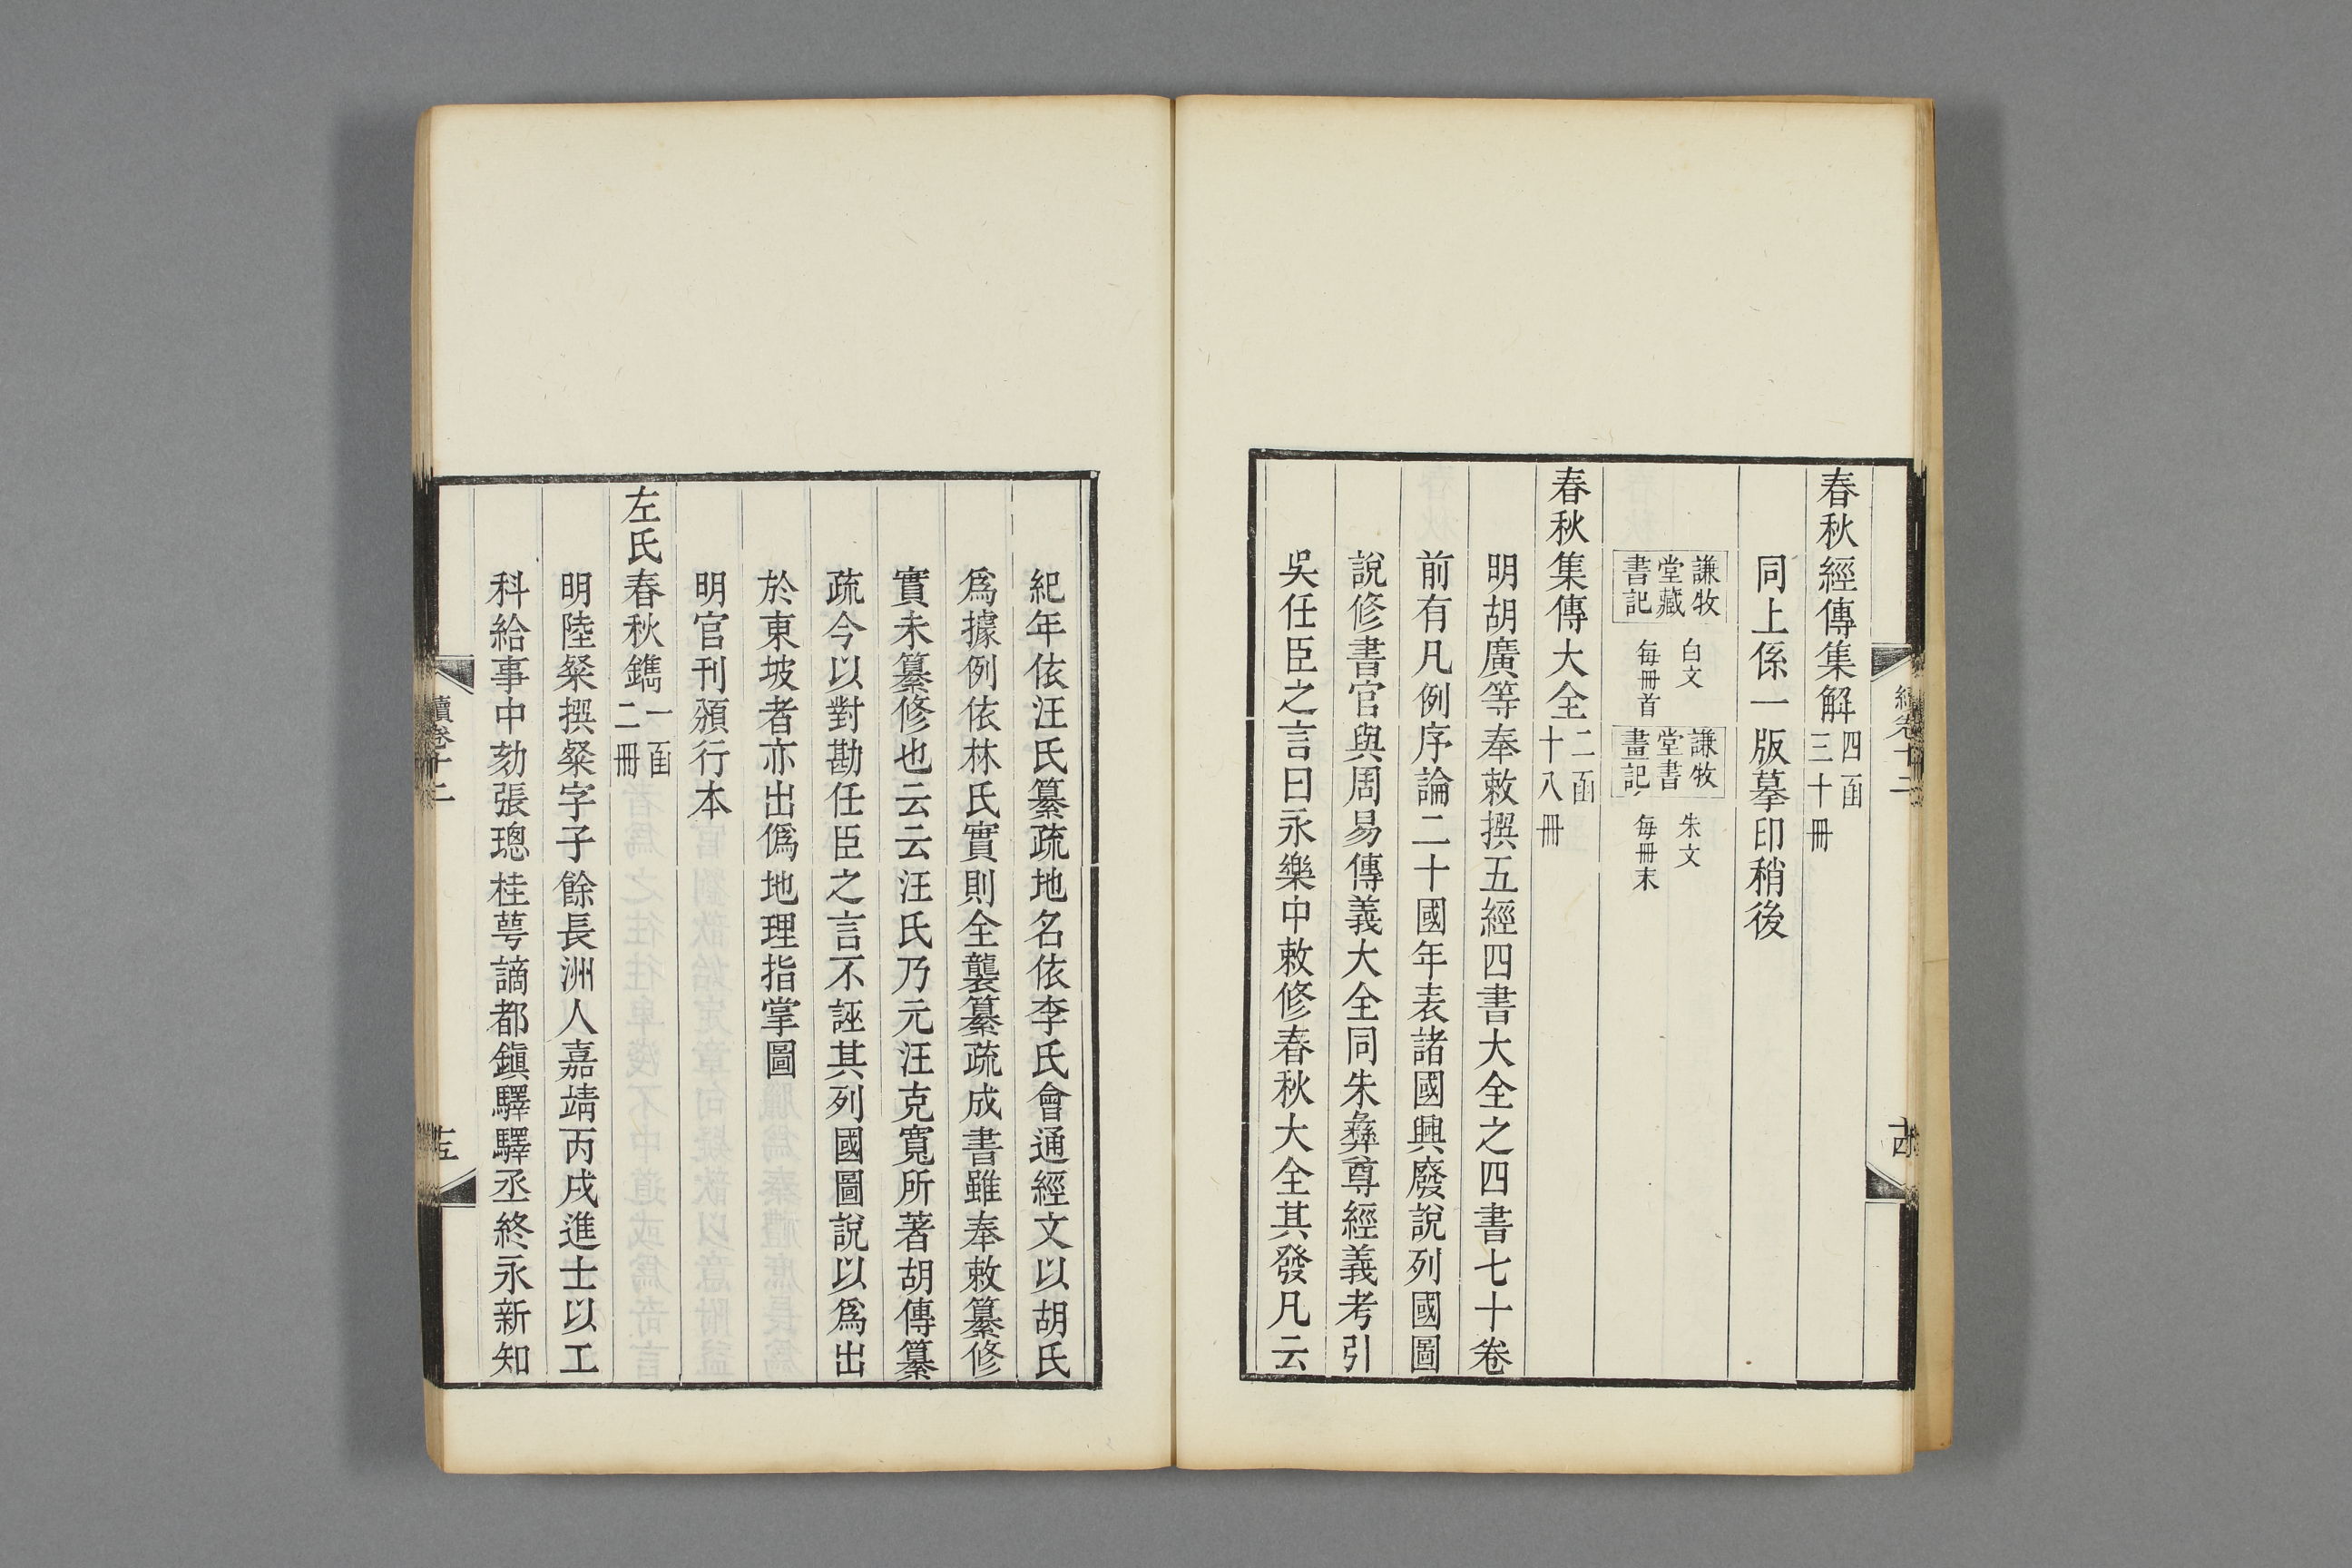 春秋經傳集解四函三十冊
同上係一版摹印稍後
謙牧堂藏書記 白文每冊首 謙牧堂書畫記 朱文每冊末
春秋集傳大全二函十八冊
明胡廣等奉敕撰五經四書大全之四書七十卷
前有凡例序論二十國年表諸國興廢說列國圖
說修書官與周易傳義大全同朱彝尊經義考引
吳任臣之言曰永樂中敕修春秋大全其發凡云
紀年依汪氏纂疏地名依李氏會通經文以胡氏
爲據例依林氏實則全襲纂疏成書雖奉敕纂修
實未纂修也云云汪氏乃元汪克寬所著胡傳纂
疏今以對勘任臣之言不誣其列國圖說以爲出
於東坡者亦出僞地理指掌圖
明官刊頒行本
左氏春秋鐫一函二冊
明陸粲撰粲字子餘長洲人嘉靖丙戌進士以工
科給事中劾張璁桂萼謫都鎭驛驛丞終永新知
續卷十二